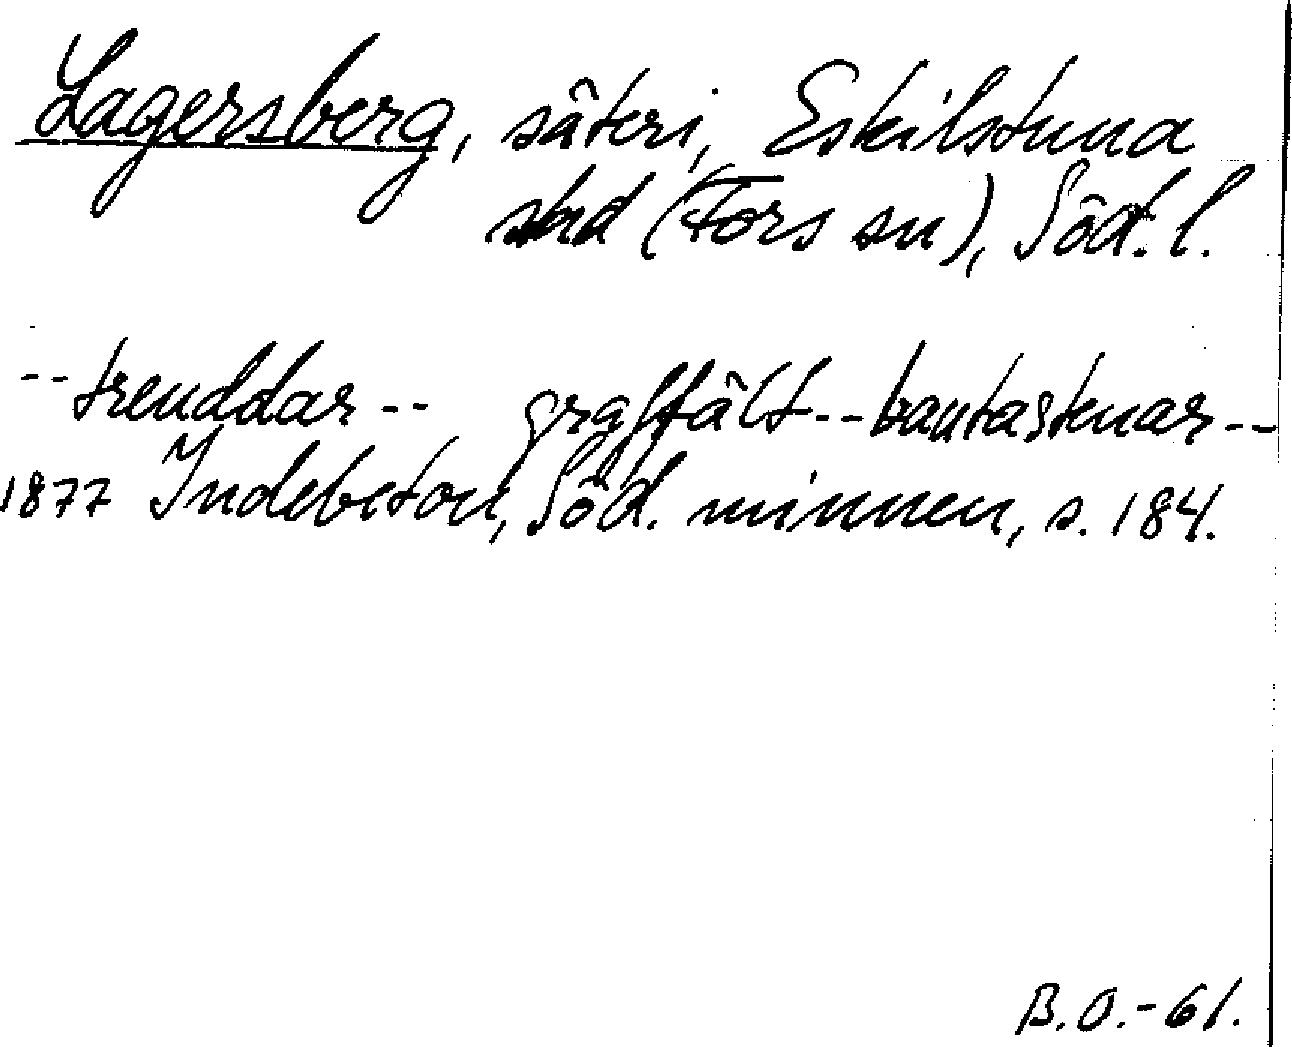 Lagersberg, säteri, Eskilstuna
stad (Fors sn), Söd. l.
-- treuddar -- gravfält -- bautastenar --
1877 Indebetou, Söd. minnen, s. 184.
B.O.-61.